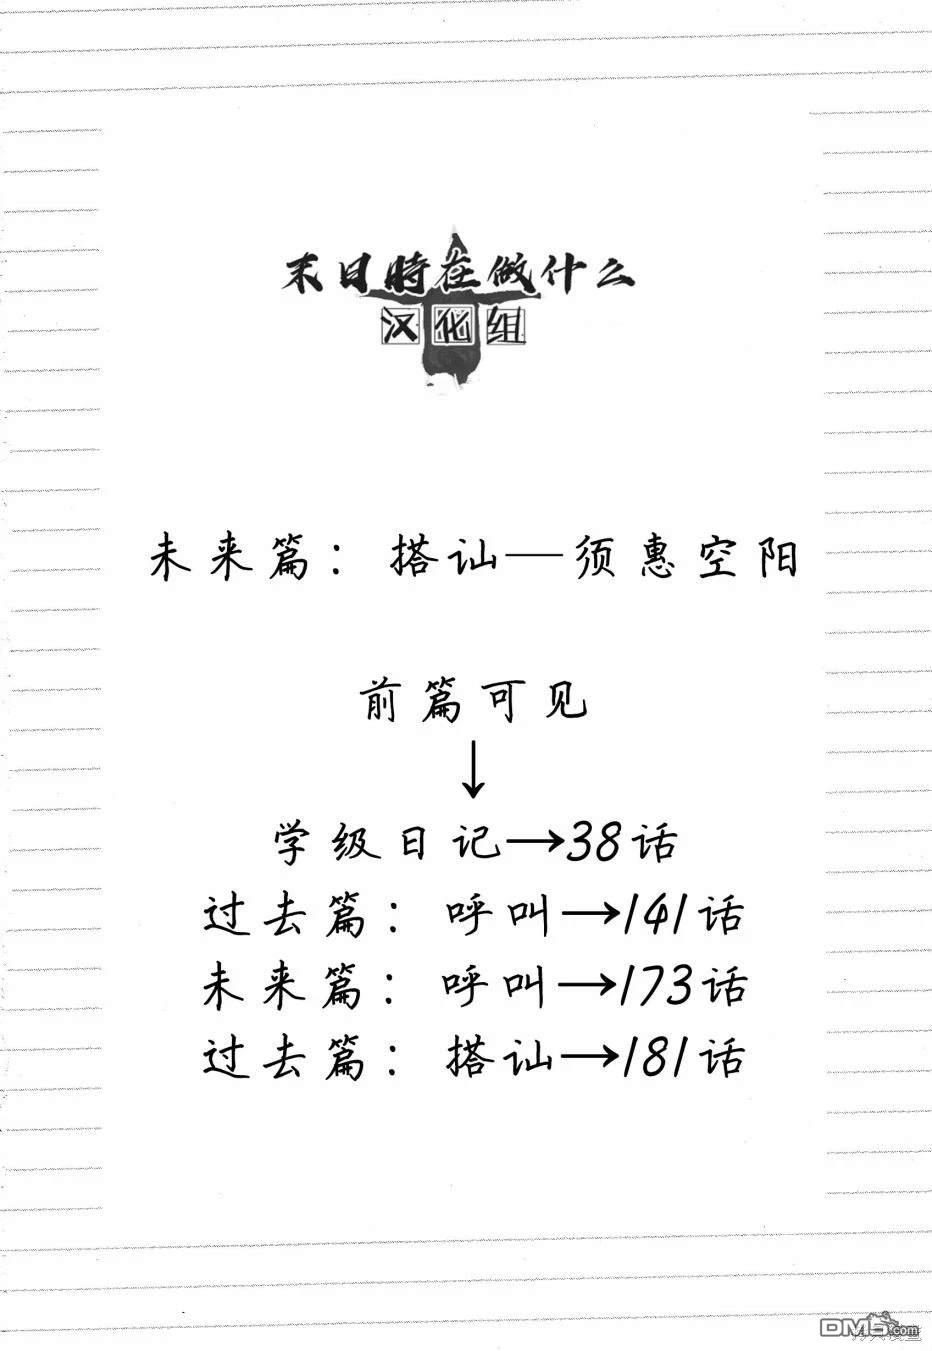 末日時在做什么
汉化组
未来篇：搭讪—须惠空阳
前篇可见
↓
学级日记→38话
过去篇：呼叫→141话
未来篇：呼叫→173话
过去篇：搭讪→181话